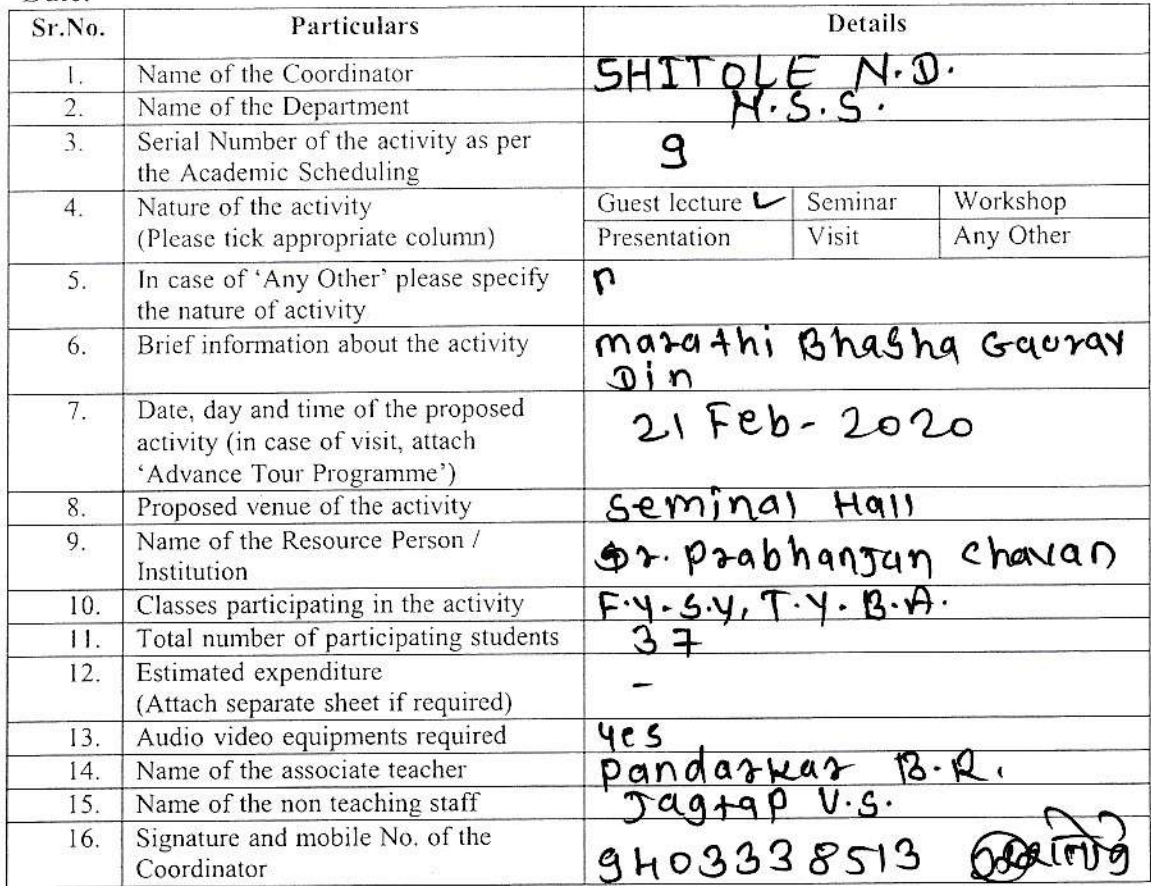 Sr.No. Particulars Details
1. Name of the Coordinator SHITOLE N.D.
2. Name of the Department N.S.S.
3. Serial Number of the activity as per
the Academic Scheduling 9
4. Nature of the activity Guest lecture ✓ Seminar Workshop
(Please tick appropriate column) Presentation Visit Any Other
5. In case of 'Any Other' please specify n
the nature of activity
6. Brief information about the activity marathi Bhasha Gaurav
Din
7. Date, day and time of the proposed
activity (in case of visit, attach 21 Feb- 2020
'Advance Tour Programme')
8. Proposed venue of the activity Seminal Hall
9. Name of the Resource Person /
Institution Dr. Prabhanjan Chavan
10. Classes participating in the activity F.Y. S.Y, T.Y. B.A.
11. Total number of participating students 37
12. Estimated expenditure -
(Attach separate sheet if required)
13. Audio video equipments required yes
14. Name of the associate teacher Pandarkar B.R.
15. Name of the non teaching staff Jagtap V.S.
16. Signature and mobile No. of the
Coordinator 9403338513